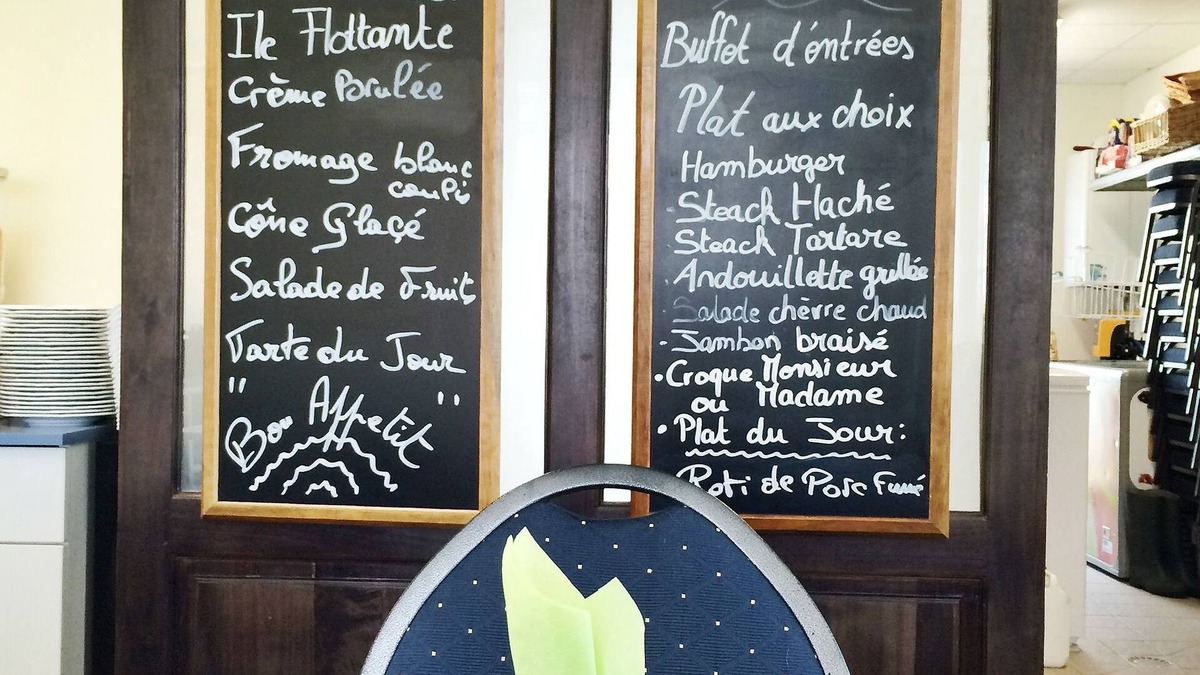 Ile Flottante
Crème Brulée
Fromage blanc
coulis
Cône Glaçé
Salade de Fruits
Tarte du Jour
" Bon Appetit "
Buffet d'éntrées
Plat aux choix
Hamburger
Steack Haché
Steack Tartare
Andouillette grillée
Salade chèvre chaud
Jambon braisé
• Croque Monsieur
ou Madame
• Plat du Jour:
Roti de Porc Fumé